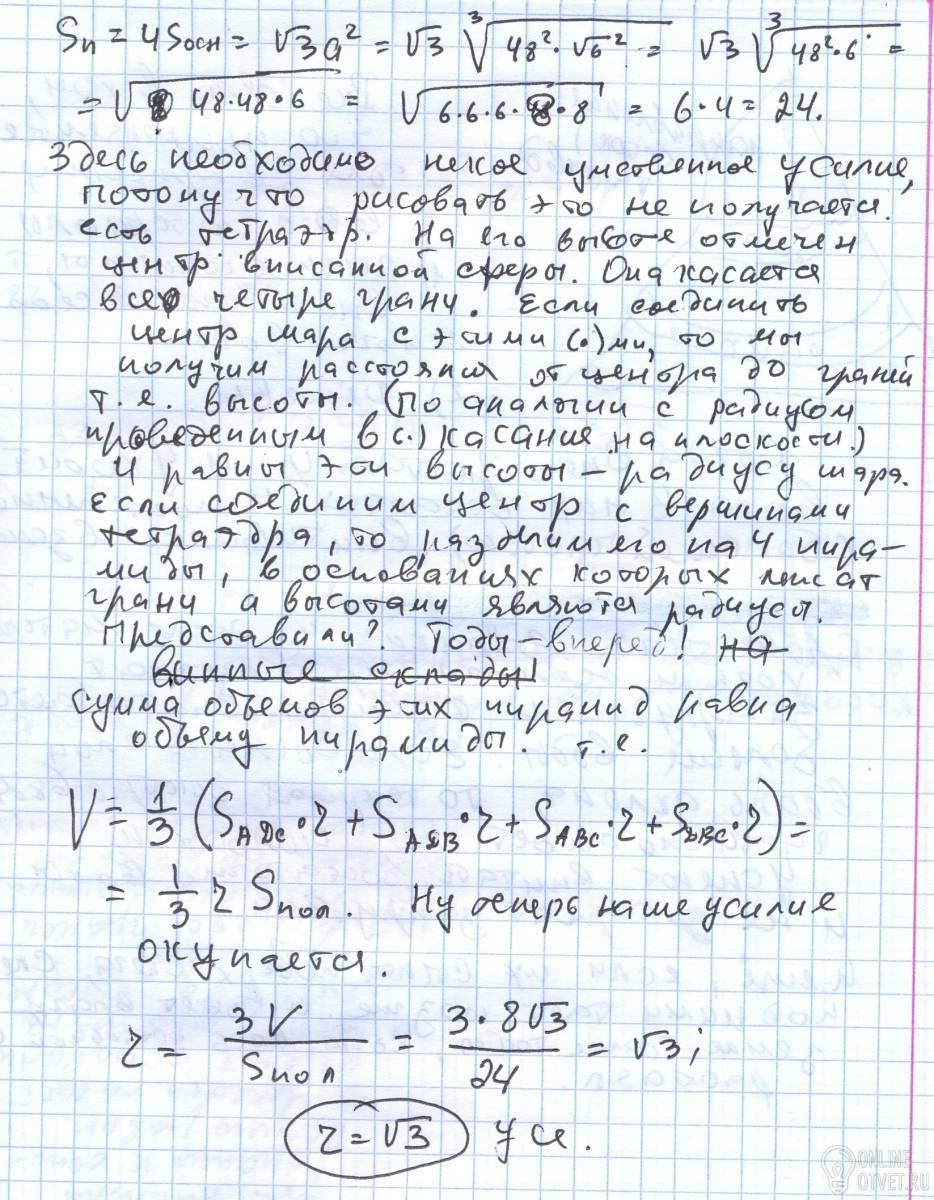 Sп = 4Sосн = √3a² = √3 ∛(48²·√6²) = √3 ∛(48²·6) =
= √(48·48·6) = √(6·6·6·8·8) = 6·4 = 24.
Здесь необходимо некое умственное усилие,
потому что рисовать это не получается.
есть тетраэдр. На его высоте отмечен
центр вписанной сферы. Она касается
все четыре грани. Если соединить
центр шара с этими (·)ми, то мы
получим расстояния от центра до граней
т.е. высоты. (По аналогии с радиусом
проведенным в (·) касания на плоскости.)
И равны эти высоты – радиусу шара.
Если соединим центр с вершинами
тетраэдра, то разобьём его на 4 пира-
миды, в основаниях которых лежат
грани а высотами являются радиусы.
Представили? Тоды – вперёд! на
винные склады!
Сумма объемов этих пирамид равна
объему пирамиды. т.е.
V = 1/3 (S ADC·r + S ADB·r + S ABC·r + S DBC·r) =
= 1/3 r Sпол. Ну теперь наше усилие
окупается.
r = 3V/Sпол = 3·8√3/24 = √3;
r = √3 усе.
ONLINE
OTVET.RU